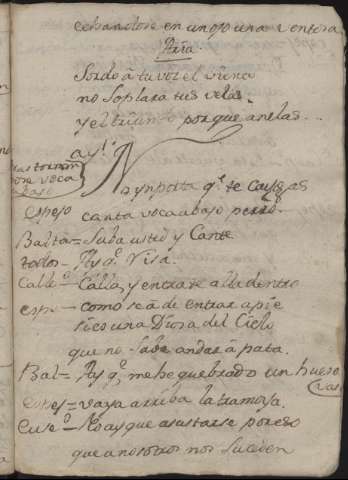 echandose en un ojo una ventosa
Aria
Sordo à tu voz el viento
no Soplara tus velas
y el triunfo porque anelas...
ay!
trastornan
dose voca
abaxo
No ynporta q.e te caigas
espejo canta voca abajo perro.
Balta= Suba usted y Cante
todos= Ay q.e Risa.
Calle= Calla, y entrase alla dentro
espe= como se à de entrar a pie
si es una Diosa del Cielo
que no Sabe andar à pata.
Bal= Ay q.e me he quebrado un hueso
(vase
Espej= vaya arriba la tramoya.
Euse.o= No ay que asustarse por eso
que a nosotros nos suceden